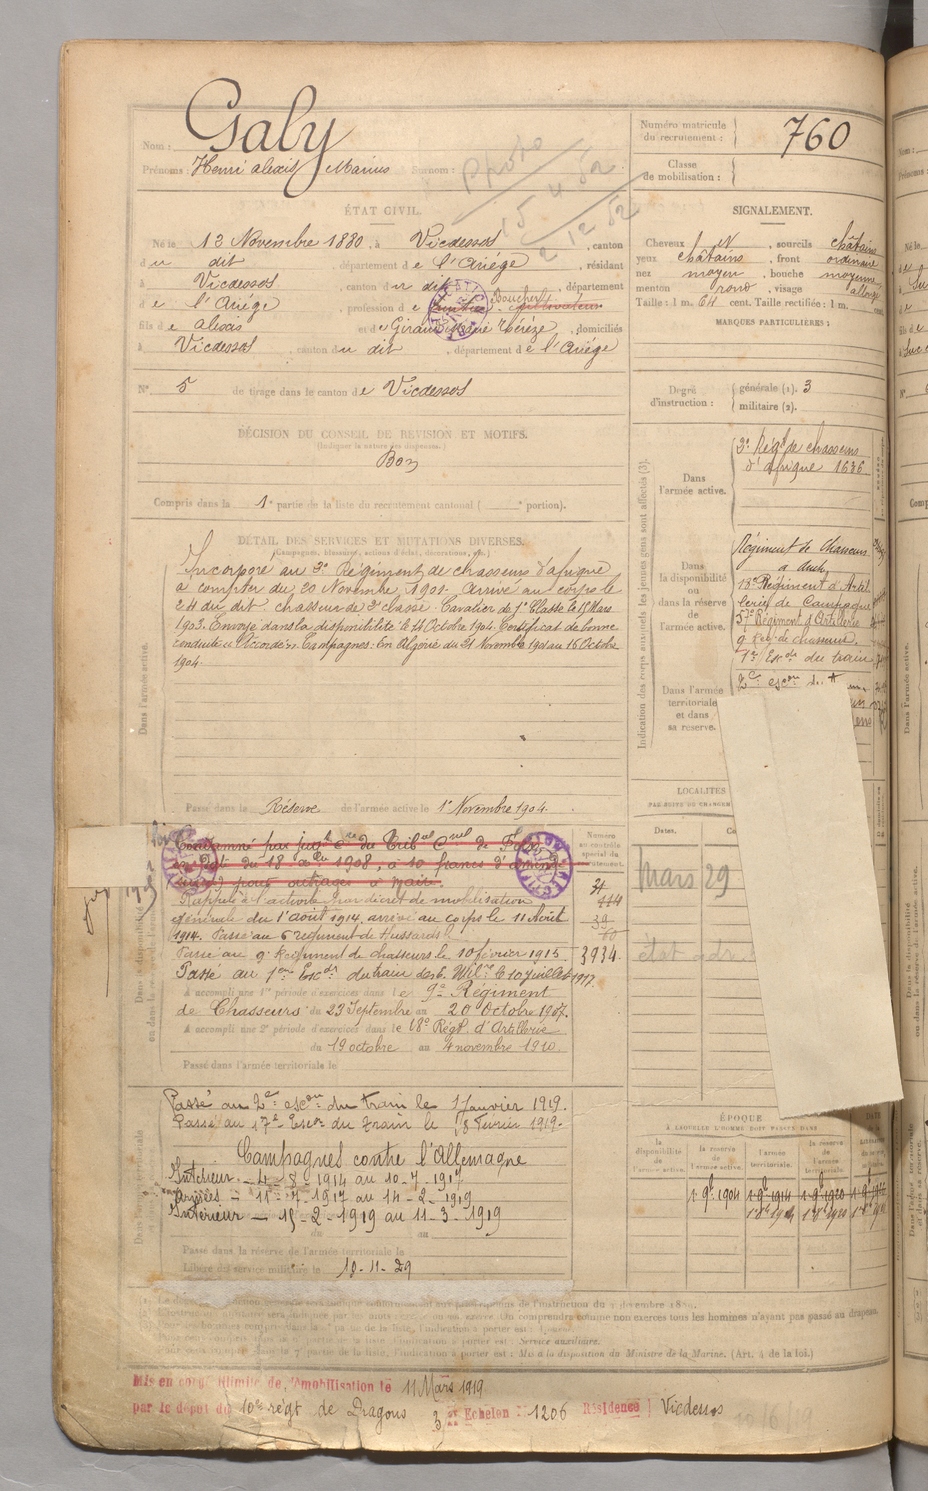 Nom : Galy
Prénoms : Henri Alexis Marius Surnom :
Photo
15 4 52
2 12 52
Numéro matricule du recrutement : 760
Classe de mobilisation :
ÉTAT CIVIL.
Né le 12 Novembre 1880, à Vicdessos, canton
du dit, département de l'Ariége, résidant
à Vicdessos, canton du dit, département
de l'Ariége, profession de Boucher cultivateur
fils de Alexis et de Giraud Marie Thérèze, domiciliés
à Vicdessos, canton du dit, département de l'Ariége
N° 5 de tirage dans le canton de Vicdessos
DÉCISION DU CONSEIL DE RÉVISION ET MOTIFS.
(Indiquer la nature des dispenses.)
Bon
Compris dans la 1e partie de la liste du recrutement cantonal ( e portion).
SIGNALEMENT.
Cheveux et, sourcils châtains
yeux châtains, front ordinaire
nez moyen, bouche moyenne
menton rond, visage allongé
Taille : 1 m. 64 cent. Taille rectifiée : 1 m. cent.
MARQUES PARTICULIÈRES :
Degré d'instruction : générale (1). 3
militaire (2).
DÉTAIL DES SERVICES ET MUTATIONS DIVERSES.
(Campagnes, blessures, actions d'éclat, décorations, etc.)
Dans l'armée active.
Incorporé au 3e Régiment de chasseurs d'afrique
à compter du 20 Novembre 1901. Arrivé au corps le
24 du dit chasseur de 2e classe. Cavalier de 1e Classe le 15 Mars
1903. Envoyé dans la disponibilité le 14 Octobre 1904. Certificat de bonne
conduite « Accordé ». Campagnes : En Algérie du 21 Novembre 1901 au 16 Octobre
1904.
Passé dans la Réserve de l'armée active le 1er Novembre 1904.
Condamné par jugt du Tribal Cuel de Foix
en date du 18 1908, à 10 francs d'amende
pour outrages à maire.
Rappelé à l'activité par décret de mobilisation
générale du 1er août 1914, arrivé au corps le 11 Août
1914. Passé au 6 régiment de Hussards
Passé au 9e Régiment de chasseurs le 10 février 1915.
Passé au 1er Escd du train des 10 juillet 1917.
A accompli une 1re période d'exercices dans le 9e Régiment
de Chasseurs du 23 Septembre au 20 Octobre 1907.
A accompli une 2e période d'exercices dans le 18e Régt d'Artillerie
du 19 octobre au 4 novembre 1910.
Passé dans l'armée territoriale le
Numéro au contrôle spécial du recrutement.
3934
Passé au 2e escon du train le 1 Janvier 1919.
Passé au 17e Escon du Train le 18 Février 1919.
Campagnes contre l'Allemagne
Intérieur - 4-8-1914 au 10-7-1917
Armées - 11-7-1917 au 14-2-1919
Intérieur - 15-2-1919 au 11-3-1919
du au
Passé dans la réserve de l'armée territoriale le
Libéré du service militaire le 10-11-29
Indication des corps auxquels les jeunes gens sont affectés (3).
Dans l'armée active.
3e Régt de chasseurs
d'afrique 1636
Dans la disponibilité ou dans la réserve de l'armée active.
Régiment de Chasseurs
à Auch
18e Régiment d'Artil
lerie de Campagne
57e Régiment d'Artillerie
9 Reg. de chasseurs.
1er Escd du train
Dans l'armée territoriale et dans sa réserve.
2e escon d. t
LOCALITÉS
Dates.
Mars 29
état
ÉPOQUE
À LAQUELLE L'HOMME DOIT PASSER DANS
la disponibilité de l'armée active.
la réserve de l'armée active.
l'armée territoriale.
la réserve de l'armée territoriale.
1 9b 1904
1 9b 1914
1 9b 1920
Service auxiliaire.
Mis à la disposition du Ministre de la Marine. (Art. 4 de la loi.)
Mis en congé illimité de démobilisation le 11 Mars 1919
par le dépôt du 10e régt de Dragons 3 Echelon N° 1206 Résidence Vicdessos
10/6/19